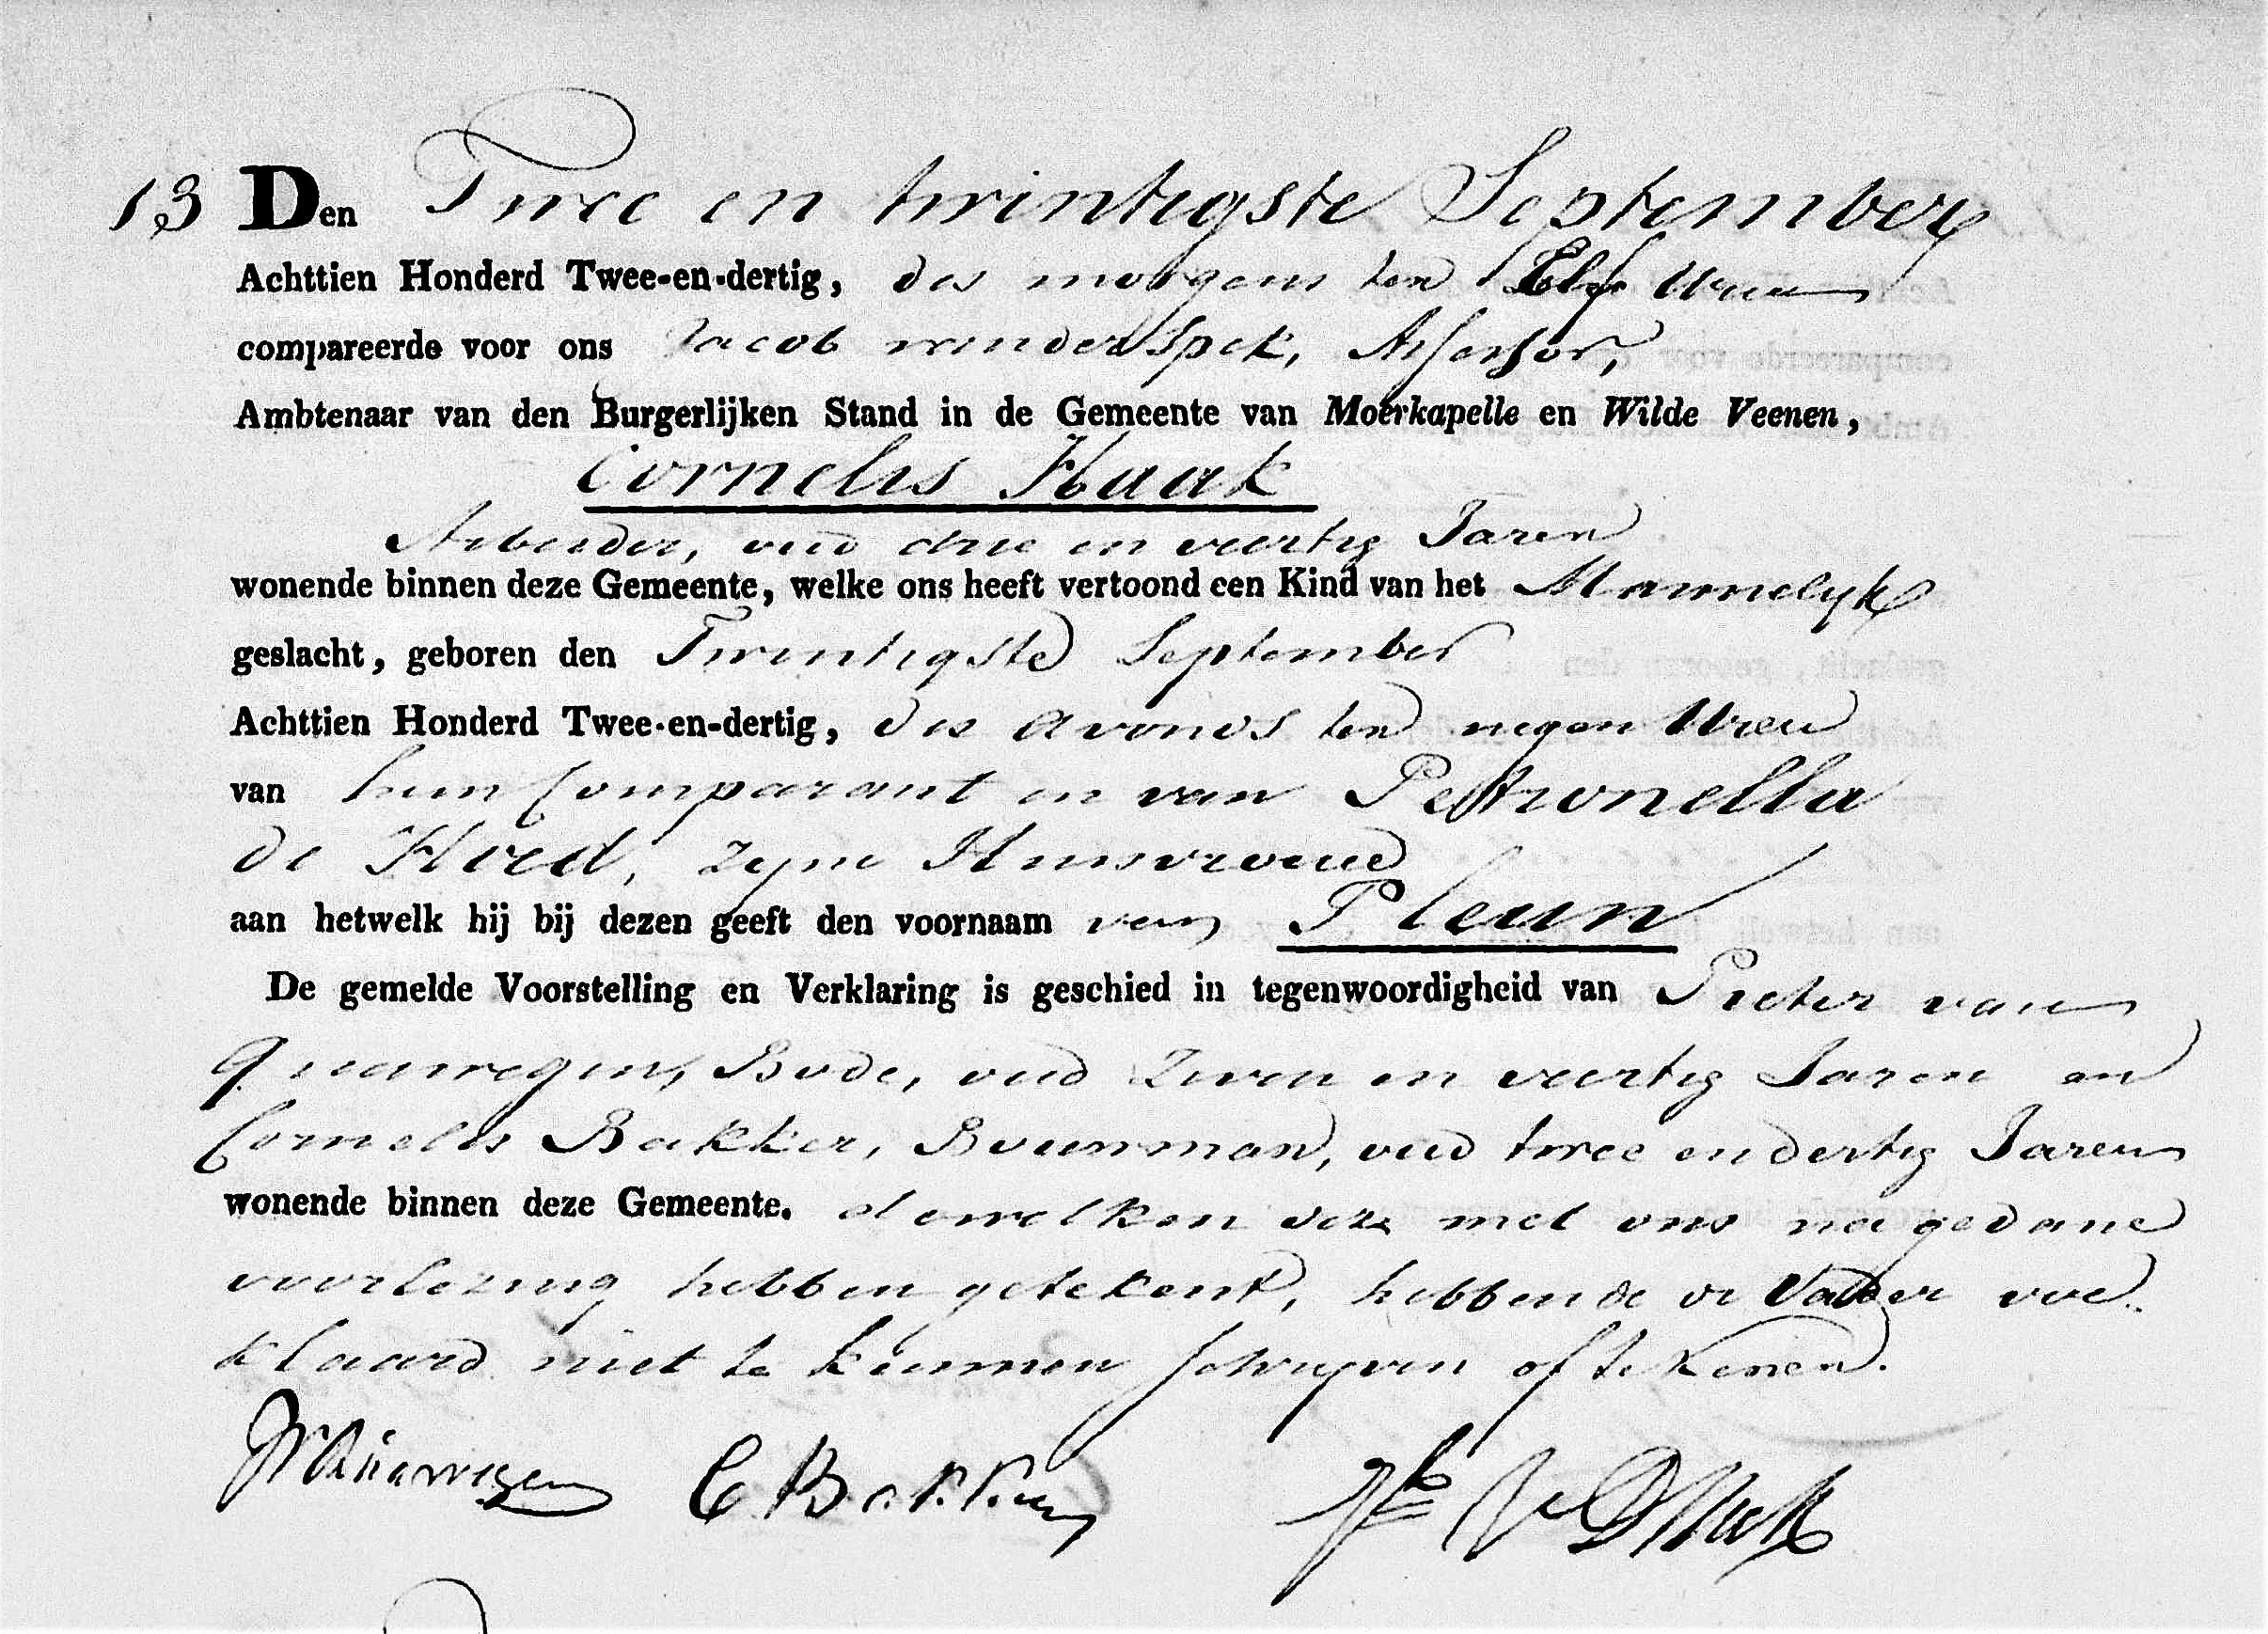 13 Den Twee en twintigste September
Achttien Honderd Twee-en-dertig, des morgens ten Elf Uren
compareerde voor ons Jacob vanderSpek, Assessor,
Ambtenaar van den Burgerlijken Stand in de Gemeente van Moerkapelle en Wilde Veenen,
Cornelis Haak
Arbeider, oud drie en veertig Jaren
wonende binnen deze Gemeente, welke ons heeft vertoond een Kind van het Mannelyk
geslacht, geboren den Twintigste September
Achttien Honderd Twee-en-dertig, des avonds ten negen Uren
van hem Comparant en van Petronella
de Hoed, zyne Huisvrouw
aan hetwelk hij bij dezen geeft den voornaam van Pleun
De gemelde Voorstelling en Verklaring is geschied in tegenwoordigheid van Pieter van
Bode, oud Zeven en veertig Jaren en
Cornelis Bakker, Bouwman, oud twee en dertig Jaren
wonende binnen deze Gemeente. dewelken deze met ons na gedane
voorlezing hebben getekent, hebbende de Vader ver-
klaard niet te kunnen schryven of tekenen.
C Bakker